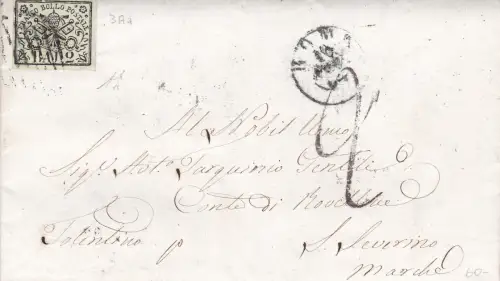 BOLLO POSTALE
3Aa
ROMA
2
Al Nobil Uomo
Sigr. Avto. Tarquinio Gentili
Conte di Rovellone
Tolentino p
S. Severino
Marche
60-